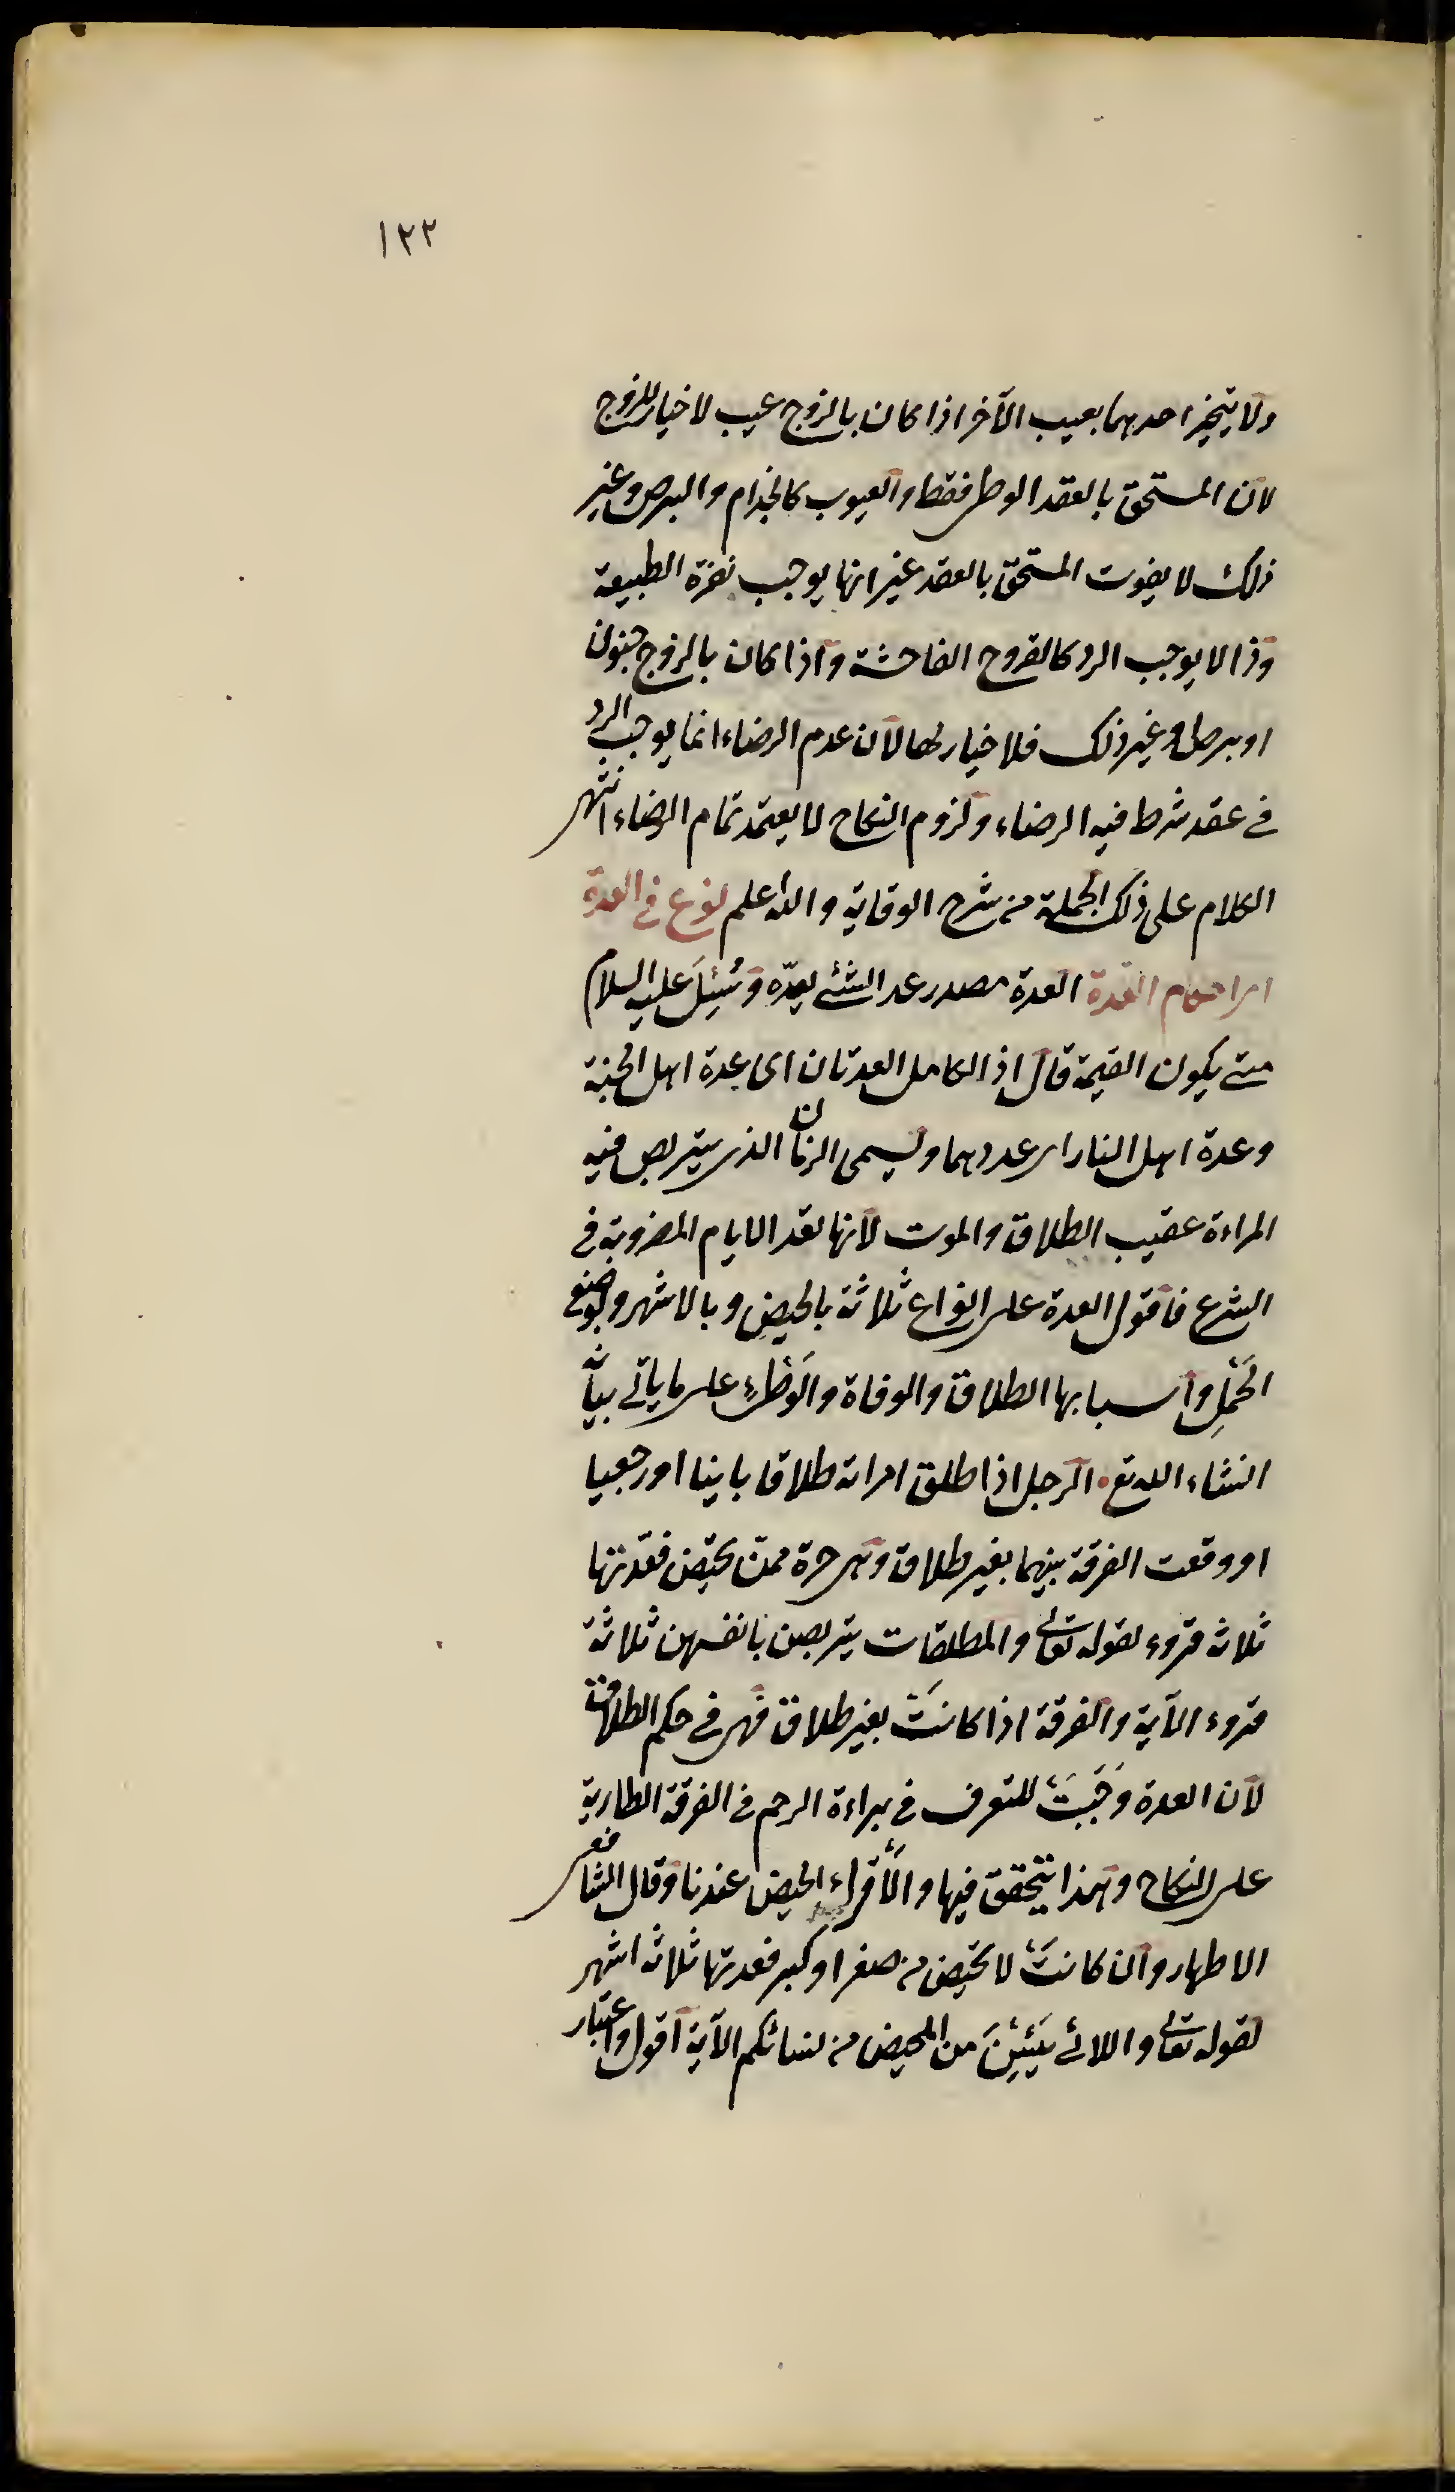 ١٢٢
ولا يتخير احدهما بعيب الآخر اذا كان بالزوج عيب لا خيار للزوج
لان المستحق بالعقد الوطى فقط والعيوب كالجذام والبرص وغير
ذلك لا يفوت المستحق بالعقد غير انها يوجب نفرة الطبيعة
وذا لا يوجب الرد كالقروح الفاحشة واذا كان بالزوج جنون
او برص او غير ذلك فلا خيار لها لان عدم الرضاء انما يوجب الرد
فى عقد شرط فيه الرضاء ولزوم النكاح لا يعتمد تمام الرضاء انتهى
الكلام على ذلك الجملة من شرح الوقاية والله اعلم نوع فى العدة
اى احكام العدة العدة مصدر عد الشئ يعدّه وسُئِلَ عليه السلام
متى يكون القيمة قال اذا تكامل العدتان اى عدة اهل الجنة
وعدة اهل النار اى عددهما ويسمى الزمان الذى يتربص فيه
المراءة عقيب الطلاق والموت لانها تعد الايام المضروبة فى
الشرع فاقول العدة على انواع ثلاثة بالحيض وبالاشهر وبوضع
الحَمْلِ واسبابها الطلاق والوفاة والوَطْىِ على ما ياتى بيانه
انشاء الله تع الرجل اذا طلق امراته طلاقا باينا او رجعيا
او وقعت الفرقة بينهما بغير طلاق وهى حرة ممن تحيض فعدتها
ثلاثة قروء لقوله تعالى والمطلقات يتربصن بانفسهن ثلاثة
قروء الآية والفرقة اذا كانَتْ بغير طلاق فهى فى حكم الطلاق
لان العدة وَجَبَتْ للتعرف فى براءة الرحم فى الفرقة الطارية
على النكاح وهذا يتحقق فيها والأَقْراء الحيض عندنا وقال الشافعى
الاطهار وان كانَتْ لا تحيض من صغر او كبر فعدتها ثلاثة اشهر
لقوله تعالى واللائى يَئِسْنَ من المحيض من نسائكم الآية اقول واعتبار